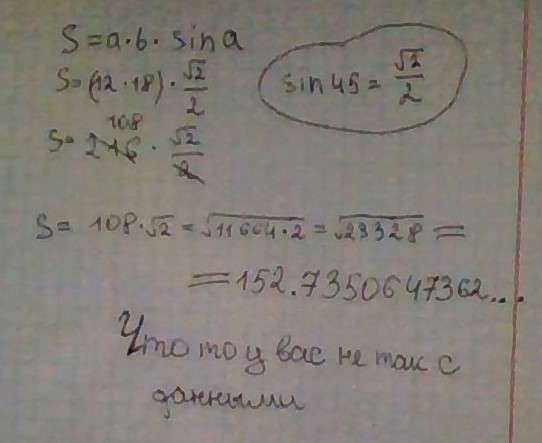 S = a·b · sin a
S = (12·18) · √2/2
sin 45 = √2/2
108
S = 216 · √2/2
S = 108·√2 = √11664·2 = √23328 =
= 152.7350647362...
Что то у вас не так с
данными